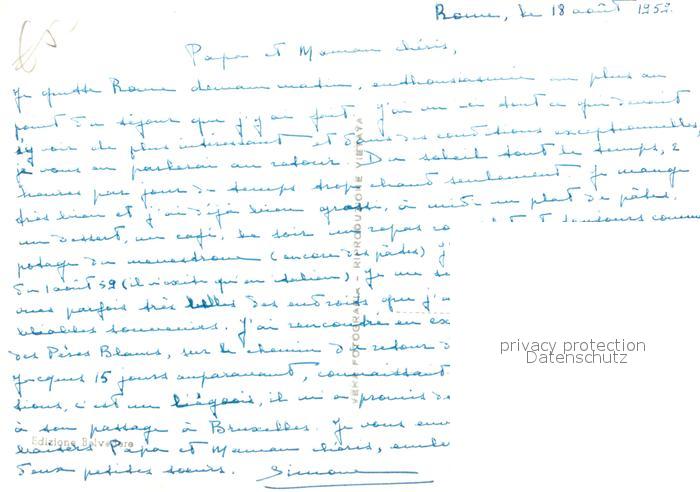 65
Rome, le 18 août 1952.
Papa et Maman chéris,
Je quitte Rome demain matin, enthousiasmée au plus au
point du séjour que j'y ai fait. J'ai vu en tout ce que devait
s'y voir de plus intéressant et dans des conditions exceptionnelles,
je vous en parlerai au retour. Du soleil tout le temps, 2
heures par jour du temps trop chaud seulement. Je mange
très bien et j'ai déjà bien grossi, à midi un plat de pâtes,
un dessert, un café, le soir un repas
potage du menestrone (encore des pâtes) j'
du 1 août 52 (il n'existe qu'en italien) Je me
parfois très belles des endroits que j'
souvenirs. J'ai rencontré en
des Pères Blancs, sur le chemin du retour
Jacques 15 jours auparavant, connaissant
c'est un liégeois, il m'a promis
à son passage à Bruxelles. Je vous
baisers Papa et Maman chéris,
deux petites soeurs. Simone
VERA FOTOGRAFIA - RIPRODUZIONE VIETATA
Edizione Belvedere
privacy protection
Datenschutz